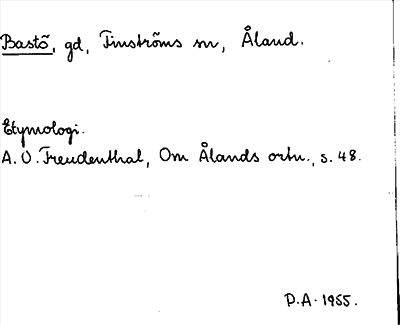 Bastö, gd, Finströms sn, Åland.
Etymologi.
A. O. Freudenthal, Om Ålands ortn., s. 48.
P.A. 1955.